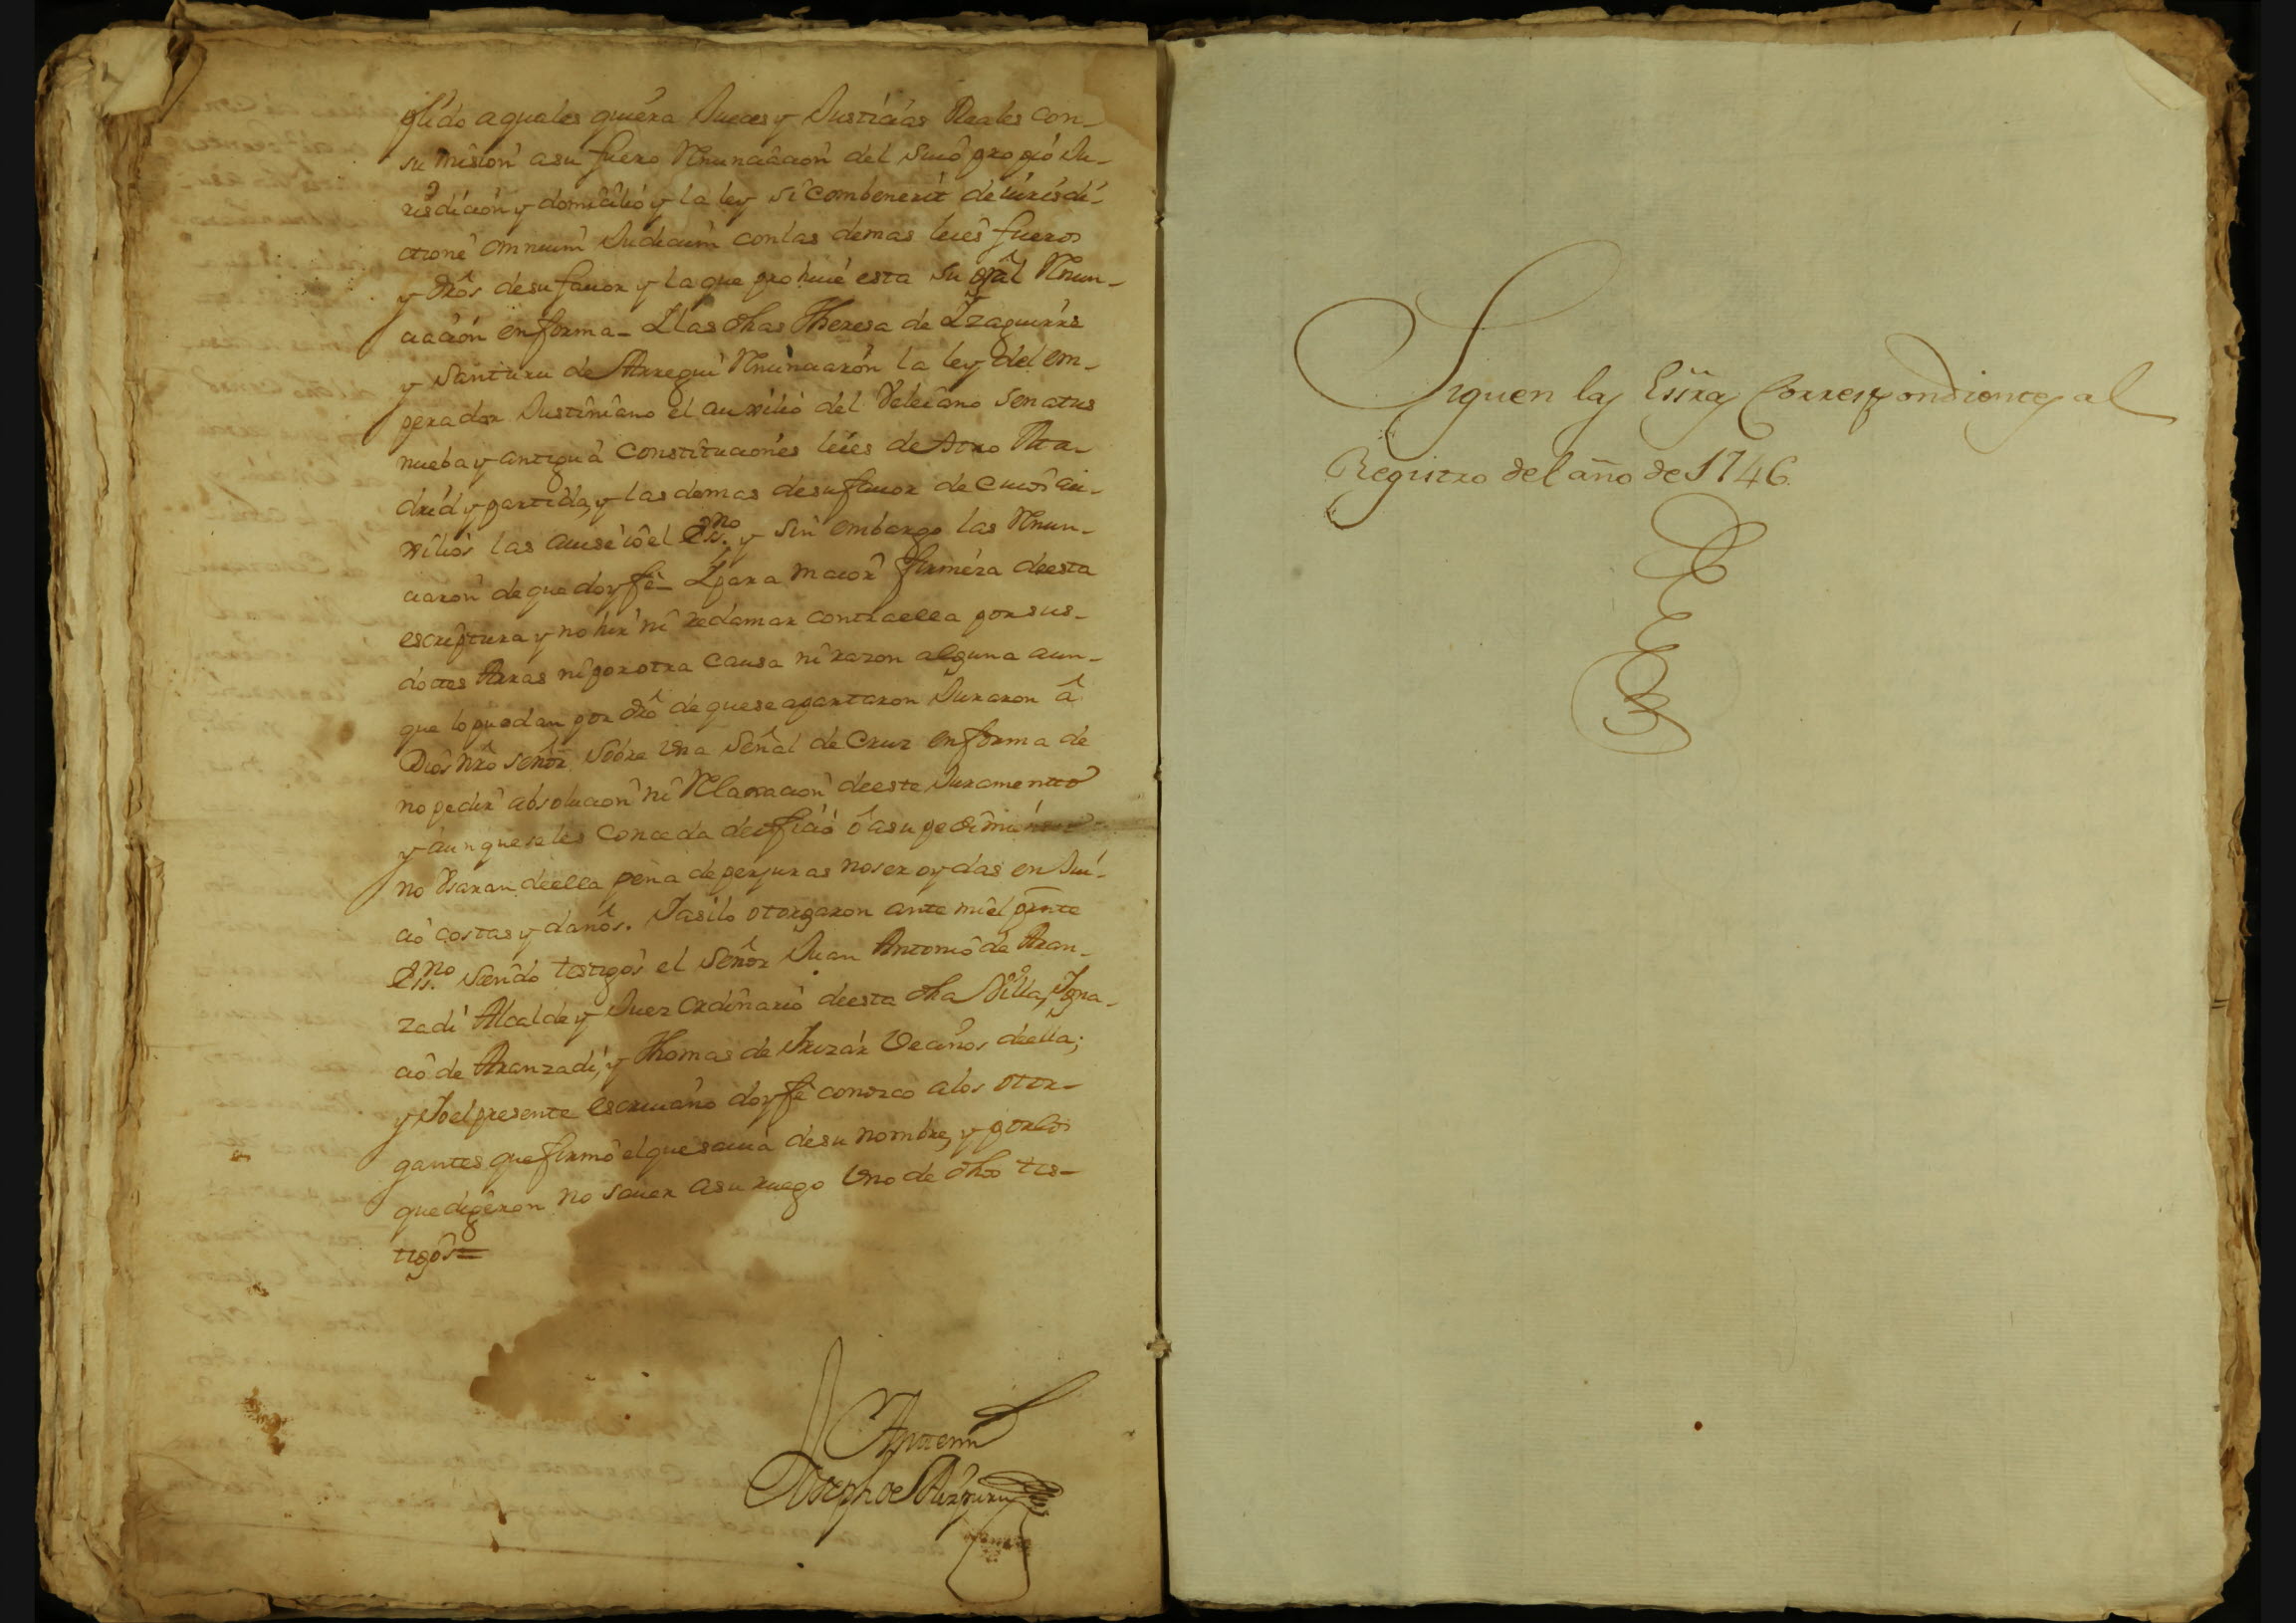 plido a quales quiera Jueces y Justicias Reales con-
su mision a su fuero Rnunciacion del suio propio Ju-
risdicion y domicilio y la ley si combenerit de iurisdi-
ctione omnium Judicum con las demas leies fueros
y dros de su fauor y la que prohiue esta su gral Rnun-
ciacion en forma_ Y las dhas Theresa de Yzaguirre
y Santuru de Arregui Rnunciaron la ley del em-
perador Justiniano el auxilio del Veleiano senatus
nueba y antigua Constituciones leies de toro Ma-
drid y partida, y las demas de su fauor de cuios au-
xilios las auise io el Ess.no y sin embargo las Rnun-
ciaron de que doy fe_ Y para maior firmeza de esta
escriptura y no hir ni reclamar contra ella por sus-
dottes Arras ni por otra causa ni razon alguna aun-
que lo puedan por dro de que se apartaron Juraron â
Dios nro señor sobre una señal de Cruz en forma de
no pedir absolucion ni Rlaxacion de este Juramentto
y aunque se les conceda de oficio ô a su pedimi
no Usaran de ella pena de perjuras no ser oydas en Jui-
cio costas y daños. Y asi lo otorgaron ante mi el prnte
Ess.no siendo testigos el señor Juan Antonio de Aran-
zadi Alcalde y Juez ordinario de esta dha Villa, Igna-
cio de Aranzadi, y Thomas de Irizar Vecinos de ella;
y Yo el presente escriuano doy fe conozco a los otor-
gantes que firmo el que sauia de su nombre, y por los
que digeron no sauer a su ruego Uno de dhos tes-
tigos=
Ante mi
Joseph de Aizpuru
Siguen las Essras Correspondientes al
Registro del año de 1746.